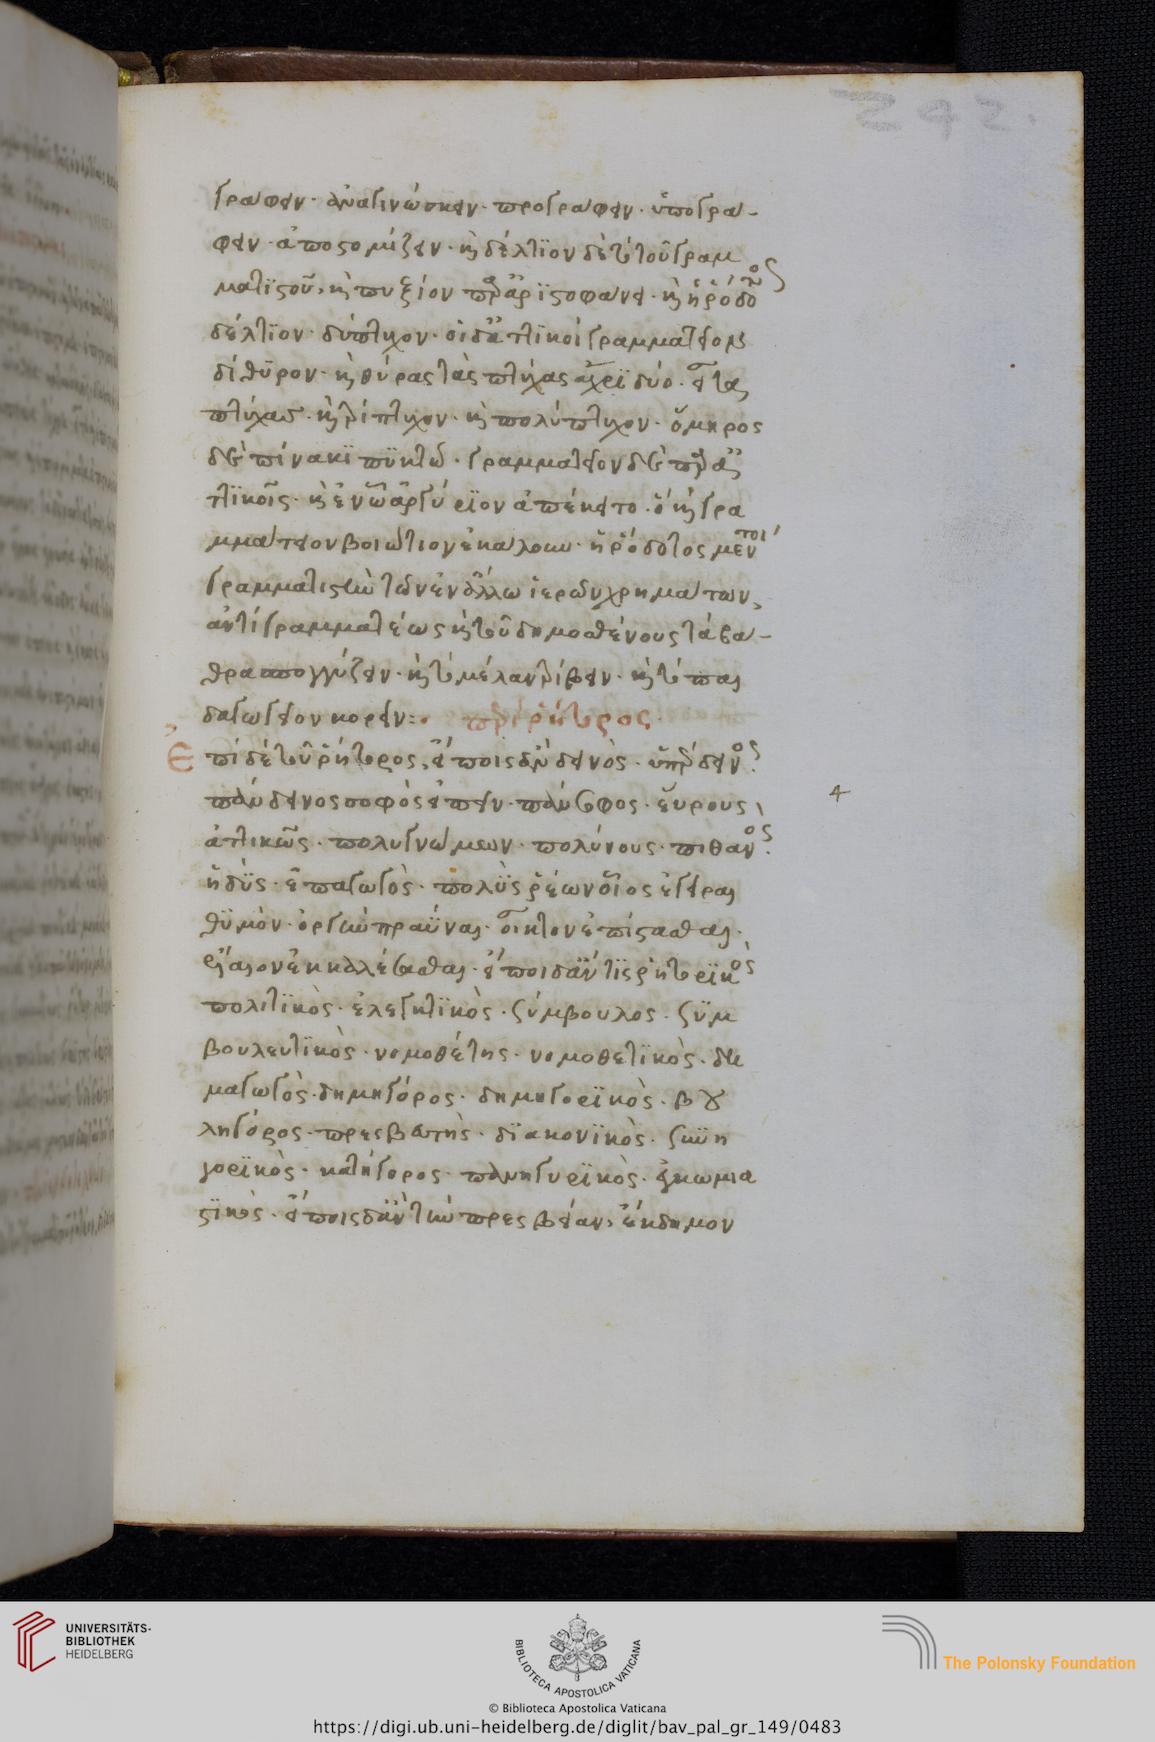 242.
γράφειν· ἀναγινώσκειν· προγράφειν· ὑπογρά-
φειν· ἀποστομίζειν· καὶ δέλτϊον δὲ τὸ τοῦ γραμ
ματϊστοῦ, καὶ πυξίον παρὰ ἀρϊστοφάνει· καὶ ἡρόδοτος
δέλτϊον δίπτυχον· οἱ δὲ ἀττϊκοὶ γραμματεῖον
δίθϋρον· καὶ θύρας τὰς πτύχας ἄχρϊ δύο· εἶτα
πτύχας· καὶ τρίπτυχον· καὶ πολύπτυχον· ὅμηρος
δὲ πίνακϊ πϋκτῶ· γραμματεῖον δὲ παρὰ ἀτ
τϊκοῖς· καὶ ἐν ὧ ἀργύρϊον ἀπέκειτο· ὃ καὶ γρα
μματεῖον βοιώτιον ἐκάλουν· ἡρόδοτος μέντοι
γραμματιστὴν τῶν ἐν ἄλλω ἱερῶν χρημάτων,
ἀντὶ γραμματέως καὶ τοῦ δημοσθένους τὰ βά-
θρα σπογγίζειν· καὶ τὸ μέλαν τρίβειν· καὶ τὸ παι
δαγωγεῖον κορεῖν: περὶ ῥήτορος·
Ἐπὶ δὲ τοῦ ῥήτορος, εἴποις ἂν δεινὸς· ὑπέρδεινος·
πάνδεινος σοφὸς εἰπεῖν· πάνσοφος· εὔρους,
ἀττικῶς· πολυγνώμων· πολύνους· πιθανός·
ἡδὺς· ἐπαγωγὸς· πολϋς ῥέων οἷος ἐγεῖραι
θϋμὸν· ὀργὴν πραΰναι· οἶκτον ἐπίσπασθαι·
ἔλεον ἐκκαλέσασθαι· εἴποι δ' ἄν τϊς ῥητορϊκὸς
πολιτϊκὸς· ἐλεγκτϊκὸς· ξύμβουλος· ξϋμ
βουλευτϊκὸς· νομοθέτης· νομοθετϊκὸς· δη
μαγωγὸς· δημηγόρος· δημηγορϊκὸς· βου
ληγόρος· πρεσβευτὴς· δϊακονϊκὸς· ξυνη
γορϊκὸς· κατήγορος· πανηγυρϊκὸς· ἐγκωμια
στϊκὸς· εἴποις δ' ἂν τὴν πρεσβείαν, ἔκδημον
UNIVERSITÄTS-
BIBLIOTHEK
HEIDELBERG
BIBLIOTECA APOSTOLICA VATICANA
The Polonsky Foundation
© Biblioteca Apostolica Vaticana
https://digi.ub.uni-heidelberg.de/diglit/bav_pal_gr_149/0483